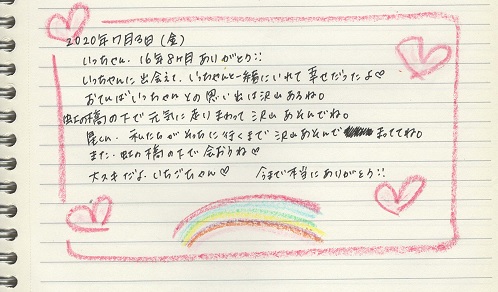 2020年7月3日(金)
いっちゃん、16年8ヶ月ありがとう!!
いっちゃんに出会えて、いっちゃんと一緒にいれて幸せだったよ♡
おてんばいっちゃんとの思い出は沢山あるね。
虹の橋の下で元気に走りまわって沢山あそんでね。
昆くん、私たちがそっちに行くまで沢山あそんでまっててね。
また、虹の橋の下で会おうね♡
大スキだよ、いちごちゃん♡ 今まで本当にありがとう!!